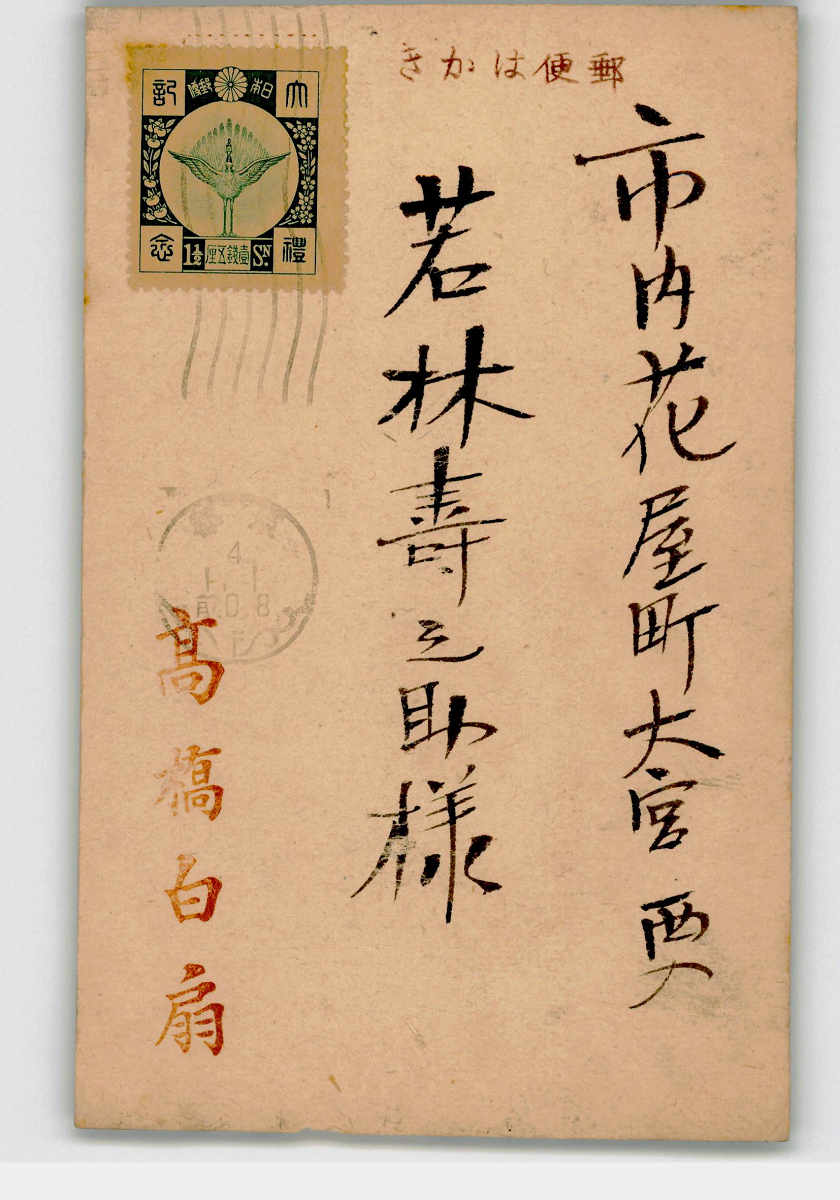 郵便はかき
市内花屋町大宮西入
若林壽之助様
高橋白扇
日本郵便
大禮記念
1½ 壹錢五厘 Sn.
4
1.1
前0-8